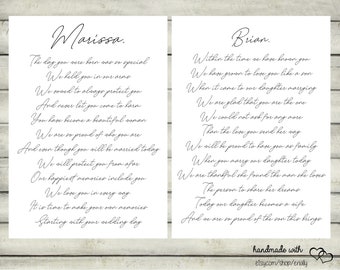 Marissa.
The day you were born was so special
We held you in our arms
We vowed to always protect you
And never let you come to harm
You have become a beautiful woman
We are so proud of who you are
And even though you will be married today
We will protect you from afar
Our happiest memories include you
We love you in every way
It is time to make your own memories
Starting with your wedding day
Brian.
Within the time we have known you
We have grown to love you like a son
When it came to our daughter marrying
We are glad that you are the one
We could not ask for any more
Than the love you send her way
We will be proud to have you as family
When you marry our daughter today
We are thankful she found the man she loves
The person to share her dreams
Today our daughter becomes a wife
And we are so proud of the son this brings
handmade with
etsy.com/shop/